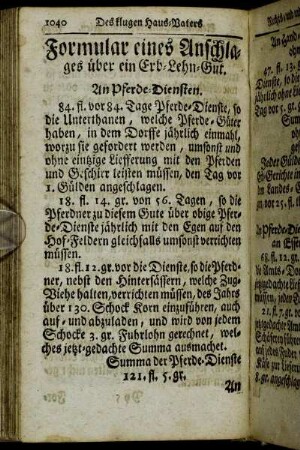 1040 Des klugen Haus-Vaters
Formular eines Anschla-
ges über ein Erb-Lehn-Gut.
An Pferde-Diensten.
84. fl. vor 84. Tage Pferde-Dienste, so
die Unterthanen, welche Pferde-Güter
haben, in dem Dorffe jährlich einmahl,
worzu sie gefordert werden, umsonst und
ohne eintzige Liefferung mit den Pferden
und Geschirr leisten müssen, den Tag vor
1. Gülden angeschlagen.
18. fl. 14. gr. von 56. Tagen, so die
Pferdner zu diesem Gute über obige Pfer-
de-Dienste jährlich mit den Egen auf den
Hof-Feldern gleichfalls umsonst verrichten
müssen.
18. fl. 12. gr. vor die Dienste, so die Pferd-
ner, nebst den Hintersässern, welche Zug-
Viehe halten, verrichten müssen, des Jahrs
über 130. Schock Korn einzuführen, auch
auf- und abzuladen, und wird von jedem
Schocke 3. gr. Fuhrlohn gerechnet, wel-
ches jetzt-gedachte Summa ausmachet.
Summa der Pferde-Dienste
121. fl. 5. gr.
An